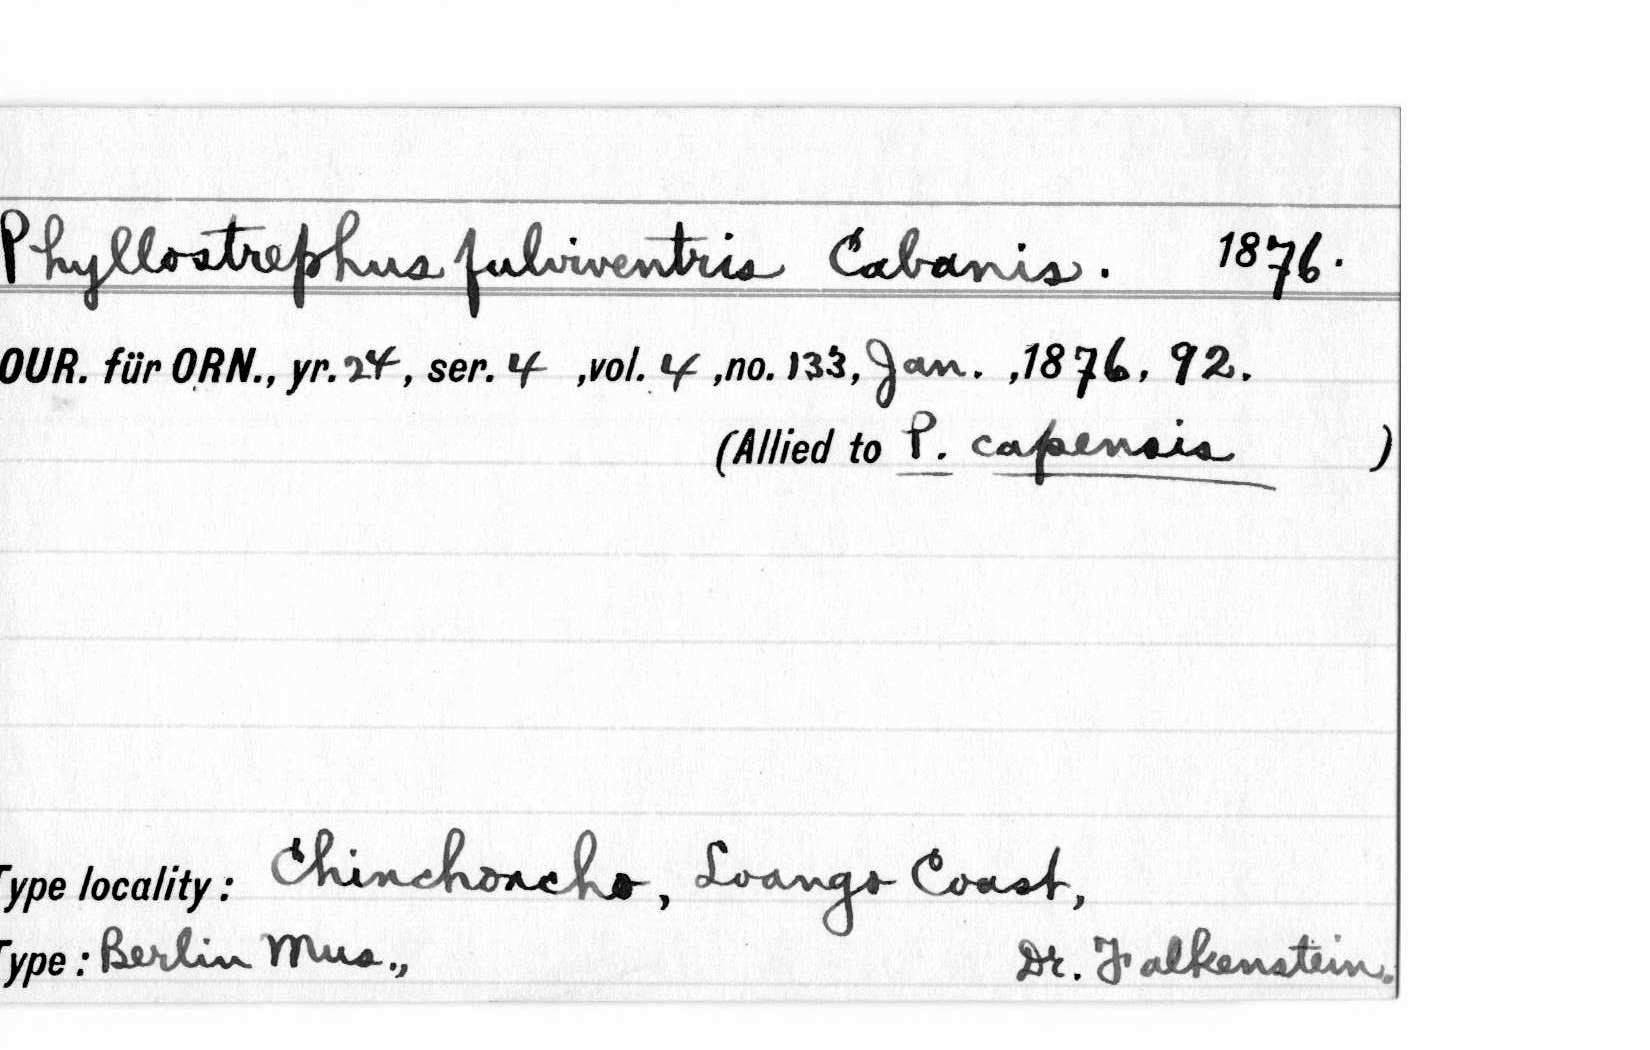 Phyllostrephus fulviventris Cabanis. 1876.
OUR. für ORN., yr. 24, ser. 4 ,vol. 4 ,no. 133, Jan. ,1876, 92.
(Allied to P. capensis )
Type locality: Chinchoncho, Loango Coast,
Type: Berlin Mus., Dr. Falkenstein.